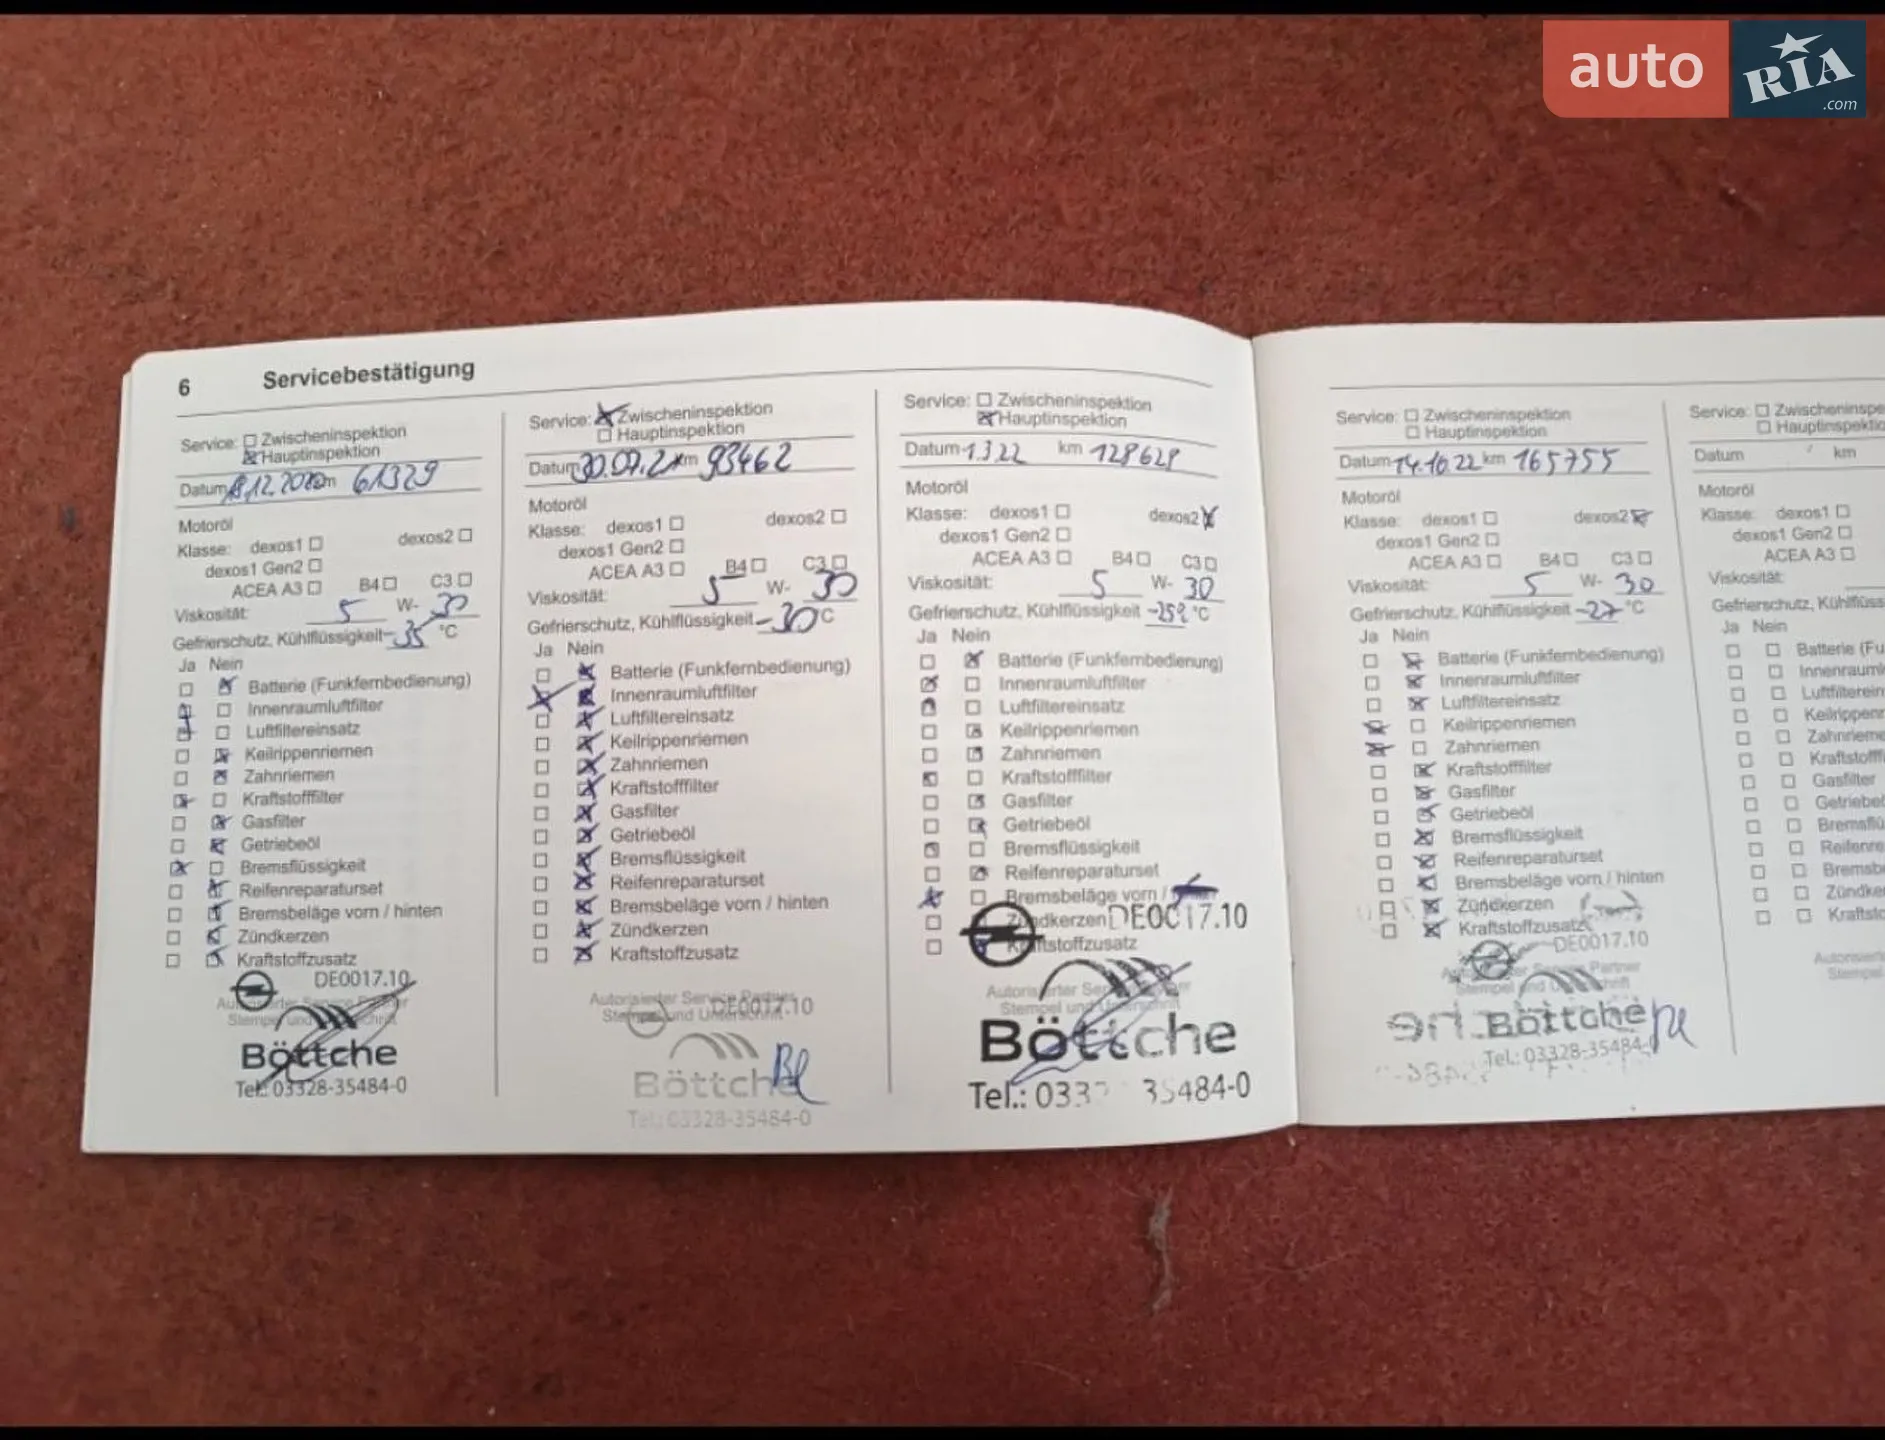 auto RIA .com
6 Servicebestätigung
Service: Zwischeninspektion
Hauptinspektion
Datum 18.12.2020 km 61329
Motoröl
Klasse: dexos1 dexos2
dexos1 Gen2
ACEA A3 B4 C3
Viskosität: 5 W- 30
Gefrierschutz, Kühlflüssigkeit -35 °C
Ja Nein
Batterie (Funkfernbedienung)
Innenraumluftfilter
Luftfiltereinsatz
Keilrippenriemen
Zahnriemen
Kraftstofffilter
Gasfilter
Getriebeöl
Bremsflüssigkeit
Reifenreparaturset
Bremsbeläge vorn / hinten
Zündkerzen
Kraftstoffzusatz
DE0017.10
Autorisierter Service Partner
Stempel und Unterschrift
Böttche
Tel.: 03328-35484-0
Service: Zwischeninspektion
Hauptinspektion
Datum 30.07.21 km 93462
Motoröl
Klasse: dexos1 dexos2
dexos1 Gen2
ACEA A3 B4 C3
Viskosität: 5 W- 30
Gefrierschutz, Kühlflüssigkeit -30 °C
Ja Nein
Batterie (Funkfernbedienung)
Innenraumluftfilter
Luftfiltereinsatz
Keilrippenriemen
Zahnriemen
Kraftstofffilter
Gasfilter
Getriebeöl
Bremsflüssigkeit
Reifenreparaturset
Bremsbeläge vorn / hinten
Zündkerzen
Kraftstoffzusatz
Autorisierter Service Partner
DE0017.10
Stempel und Unterschrift
Böttche
Tel.: 03328-35484-0
Service: Zwischeninspektion
Hauptinspektion
Datum 1.3.22 km 128628
Motoröl
Klasse: dexos1 dexos2
dexos1 Gen2
ACEA A3 B4 C3
Viskosität: 5 W- 30
Gefrierschutz, Kühlflüssigkeit -25° °C
Ja Nein
Batterie (Funkfernbedienung)
Innenraumluftfilter
Luftfiltereinsatz
Keilrippenriemen
Zahnriemen
Kraftstofffilter
Gasfilter
Getriebeöl
Bremsflüssigkeit
Reifenreparaturset
Bremsbeläge vorn /
Zündkerzen DE0017.10
Kraftstoffzusatz
Autorisierter Service Partner
Stempel und Unterschrift
Böttche
Tel.: 033 35484-0
Service: Zwischeninspektion
Hauptinspektion
Datum 14.10.22 km 165755
Motoröl
Klasse: dexos1 dexos2
dexos1 Gen2
ACEA A3 B4 C3
Viskosität: 5 W- 30
Gefrierschutz, Kühlflüssigkeit -27 °C
Ja Nein
Batterie (Funkfernbedienung)
Innenraumluftfilter
Luftfiltereinsatz
Keilrippenriemen
Zahnriemen
Kraftstofffilter
Gasfilter
Getriebeöl
Bremsflüssigkeit
Reifenreparaturset
Bremsbeläge vorn / hinten
Zündkerzen
Kraftstoffzusatz
DE0017.10
Autorisierter Service Partner
Stempel und Unterschrift
Böttche
Tel.: 03328-35484-0
Service: Zwischeninspe
Hauptinspektio
Datum km
Motoröl
Klasse: dexos1
dexos1 Gen2
ACEA A3
Viskosität:
Gefrierschutz, Kühlflüss
Ja Nein
Batterie (Fu
Innenrauml
Luftfilterein
Keilrippenr
Zahnrieme
Kraftstofff
Gasfilter
Getriebeö
Bremsflü
Reifenre
Bremsbe
Zündker
Kraftsto
Autorisiert
Stempel